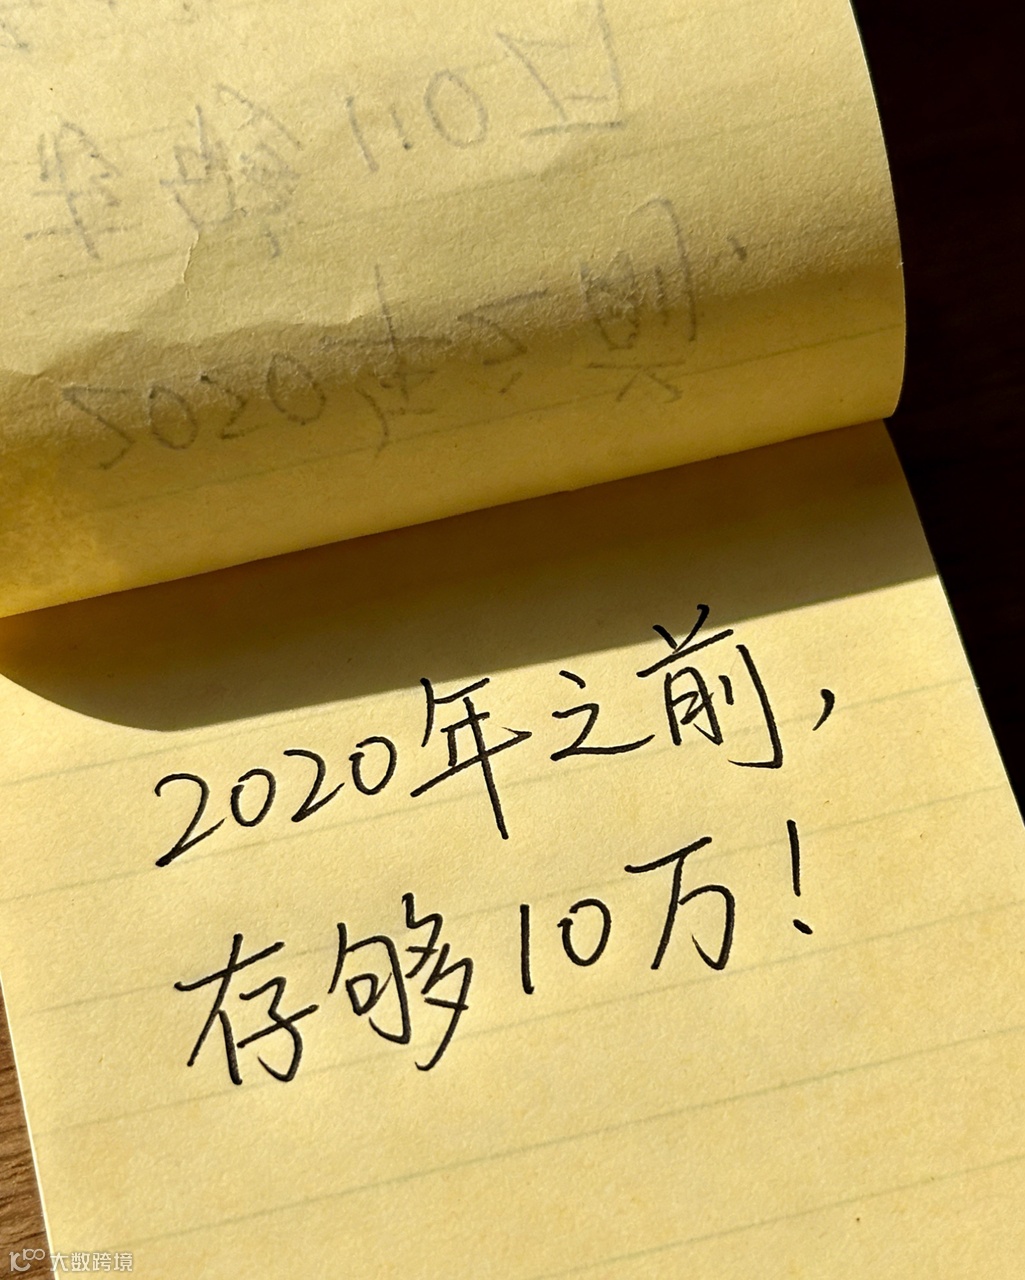 2020年之前,
存够10万!
大数跨境